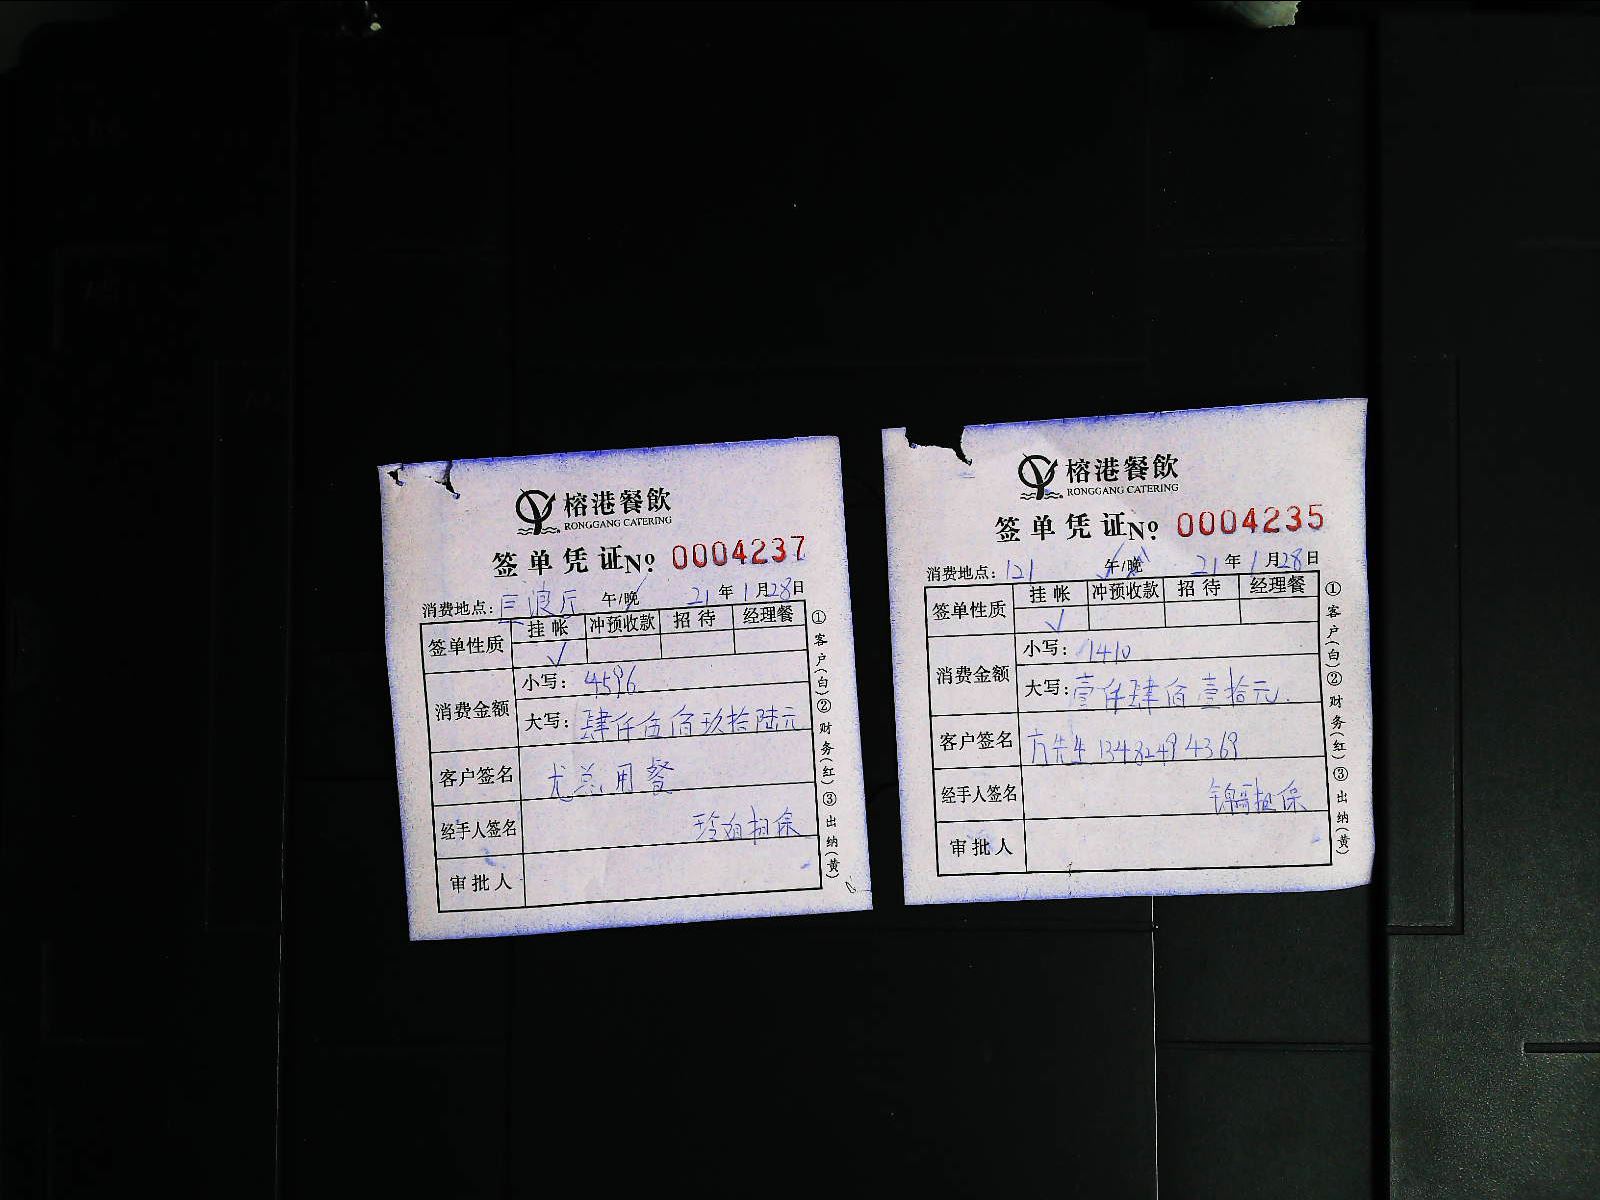 榕港餐飲
RONGGANG CATERING
签单凭证№ 0004237
消费地点: 浪厅 午/晚 21年1月28日
签单性质 挂帐 冲预收款 招待 经理餐
√
消费金额 小写: 4596
大写: 肆仟伍佰玖拾陆元
客户签名 尤总用餐
经手人签名 担保
审批人
①客户(白)②财务(红)③出纳(黄)
榕港餐飲
RONGGANG CATERING
签单凭证№ 0004235
消费地点: 121 午/晚 21年1月28日
签单性质 挂帐 冲预收款 招待 经理餐
√
消费金额 小写: 1410
大写: 壹仟肆佰壹拾元.
客户签名 方先生 13482494369
经手人签名 锦哥担保
审批人
①客户(白)②财务(红)③出纳(黄)